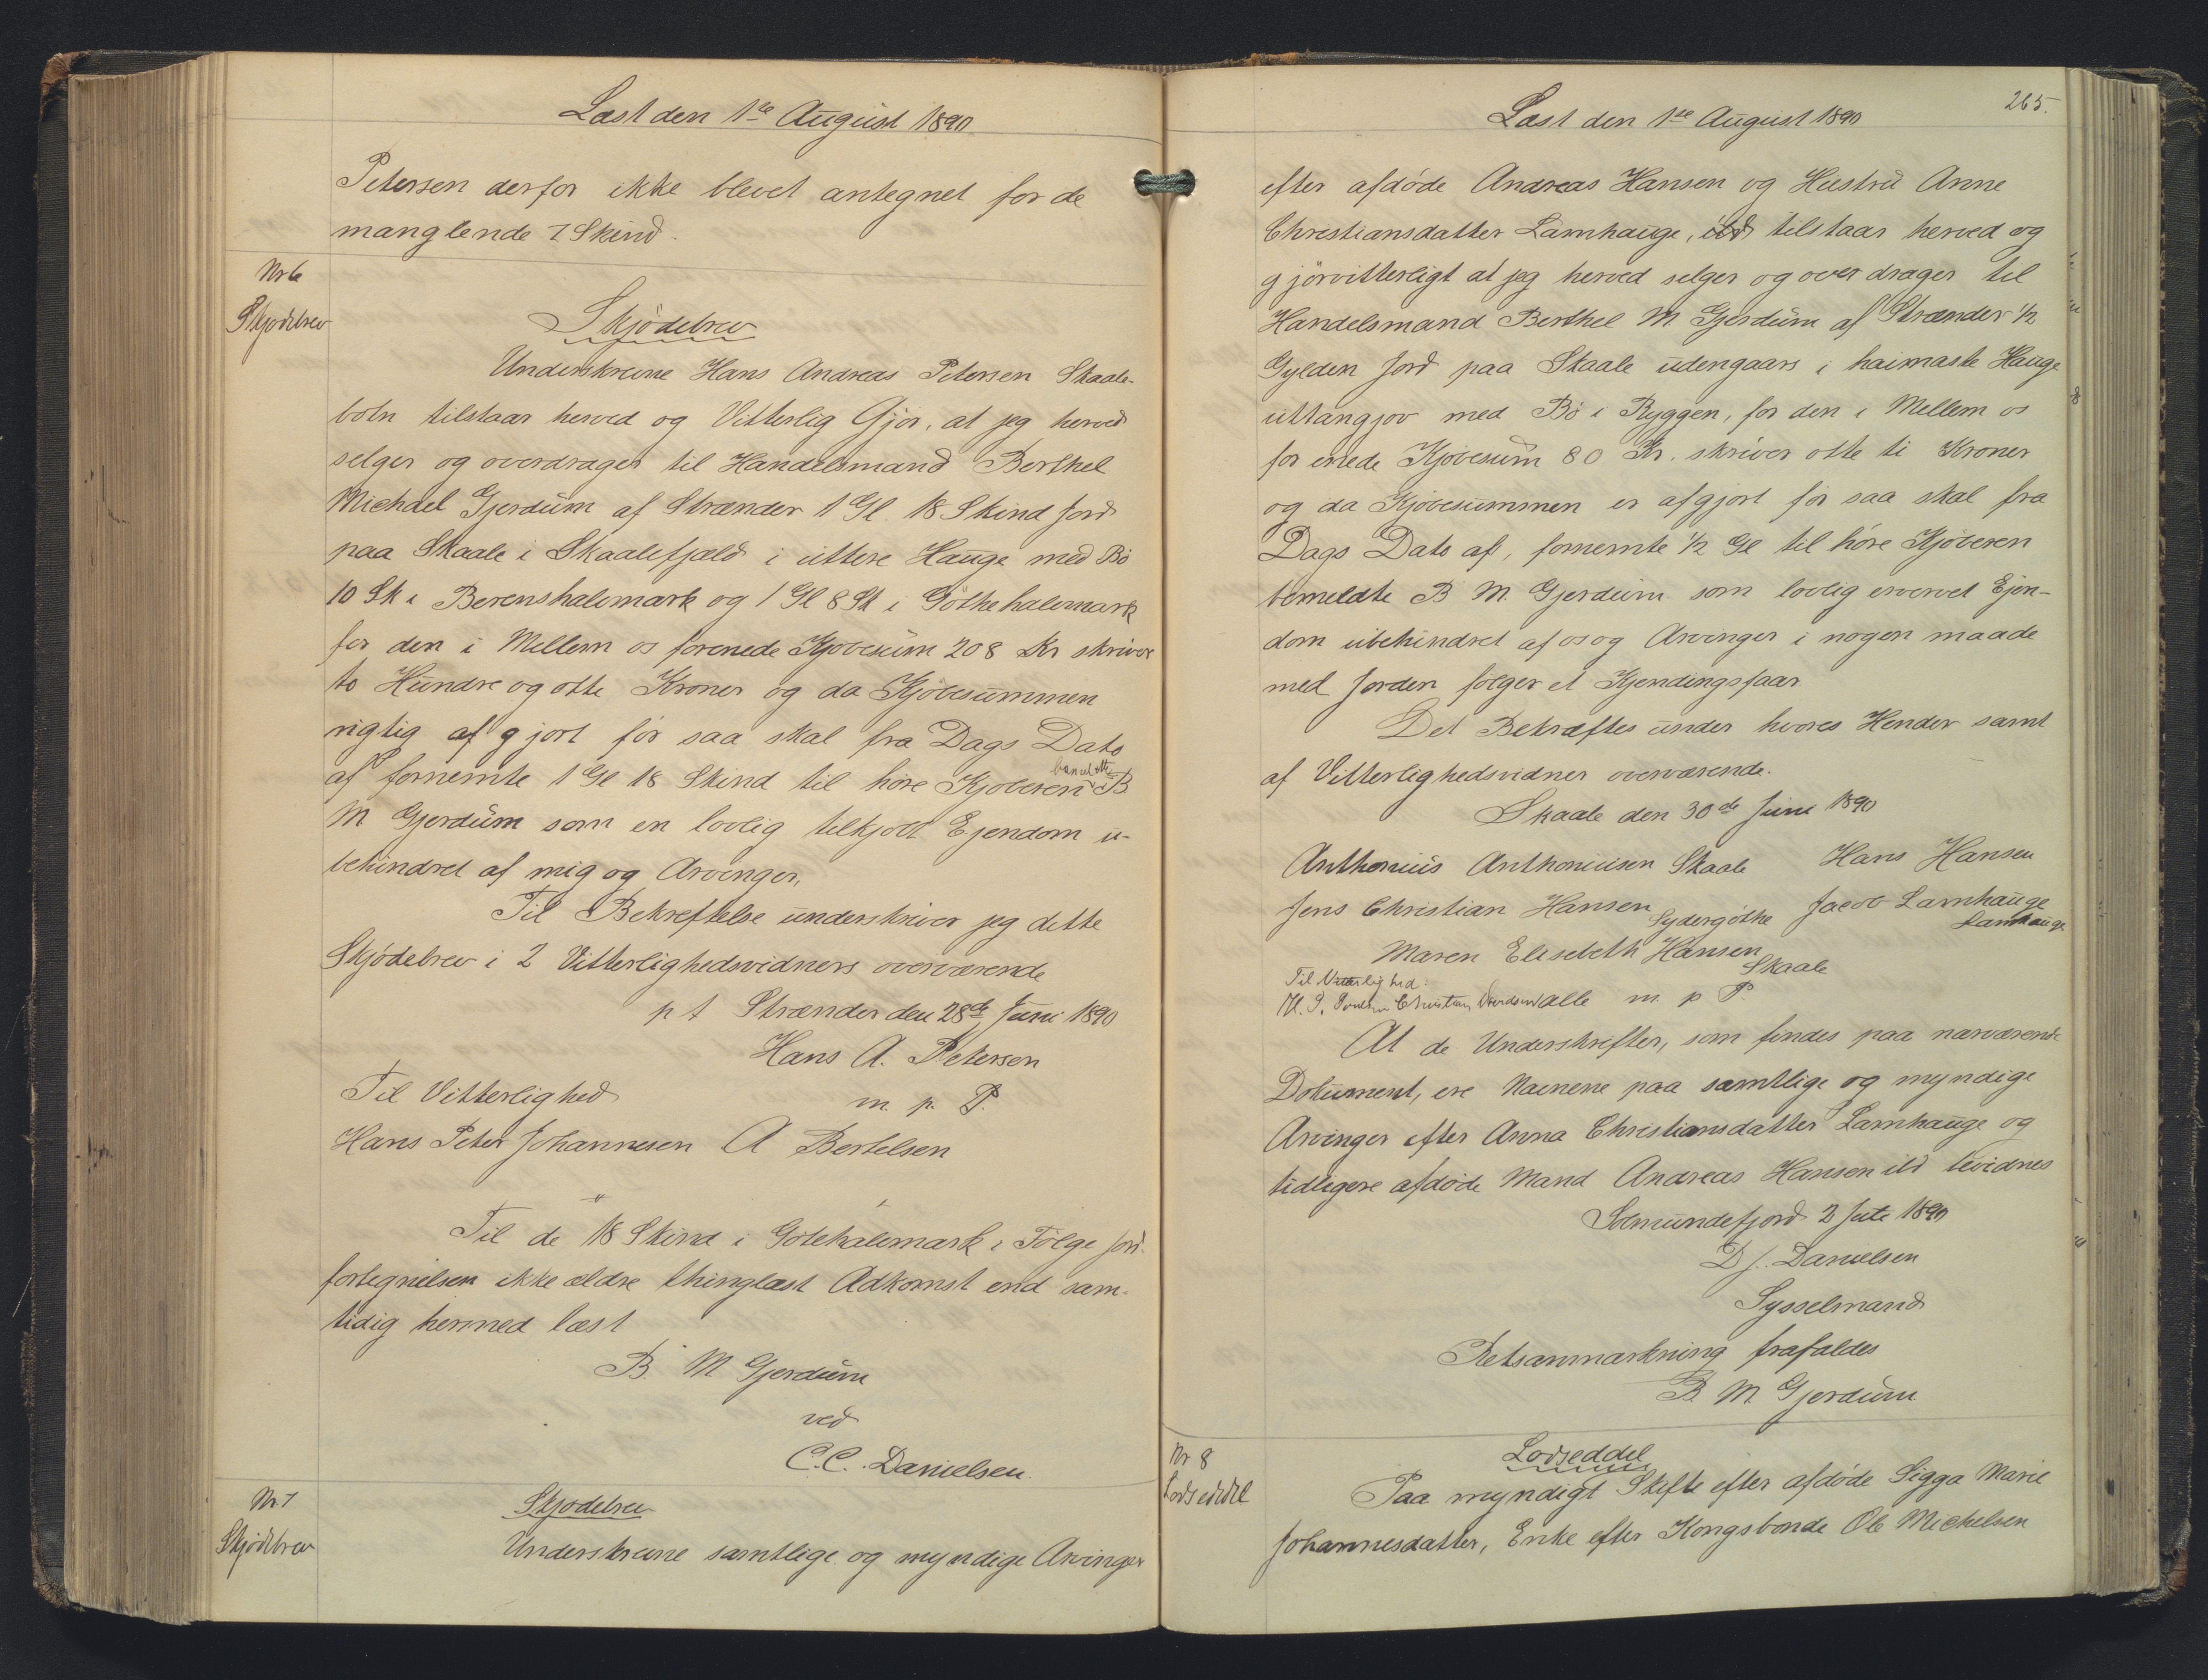 Læst den 1ste August 1890
Petersen derfor ikke blevet antegnet for de
manglende 7 Skind.
Nr 6
Skjödebrev
Skjödebrev
Underskrevne Hans Andreas Petersen Skaale-
botn tilstaar herved og Vitterlig Gjör, at jeg herved
selger og overdrager til Handelsmand Berthel
Michael Gjerdum af Strænder 1 Gl. 18 Skind Jord
paa Skaale i Skaalefjæld i uttere Hauge med Bö
10 Sk i Berenshalemark og 1 Gl 8 Sk i Göthehalemark
for den i Mellem os forenede Kjövesum 208 Kr skriver
to Hundre og otte Kroner og da Kjövesummen
rigtig af gjort för saa skal fra Dags Dato
af fornemte 1 Gl 18 Skind til höre Kjöveren bemeldte B
M Gjerdum som en lovlig tilkjövt Ejendom u-
behindret af mig og Arvinger,
Til Bekreftelse underskriver jeg dette
Skjödebrev i 2 Vitterlighedsvidners overværende
p t Strænder den 28de Juni 1890
Hans A. Petersen
Til Vitterlighed m. p. P.
Hans Peter Johannesen A Bertelsen
Til de 18 Skind i Götehalemark i Fölge Jord-
fortegnelsen ikke ældre thinglæst Adkomst end sam-
tidig hermed læst
B. M Gjerdum
ved
C. C. Danielsen.
Nr 7
Skjödebrev
Skjödebrev
Underskrevne samtlige og myndige Arvinger
265.
Læst den 1ste August 1890
efter afdöde Andreas Hansen og Hustru Anne
Christiansdatter Lamhauge, ibd tilstaar herved og
gjörvitterligt at jeg herved selger og over drager til
Handelsmand Berthel M. Gjerdum af Strænder 1/2
Gylden Jord paa Skaale udengaars i haimaste Hauge
uttangjov med Bö i Ryggen, for den i Mellem os
for enede Kjövesum 80 Kr. skriver otte ti Kroner
og da Kjövesummen er afgjort för saa skal fra
Dags Dato af, fornemte 1/2 Gl til höre Kjöveren
bemeldte B M. Gjerdum som lovlig ervervet Ejen-
dom ubehindret af os og Arvinger i nogen maade
med Jorden fölger et Kjendingsfaar.
Det Bekræftes under hvores Hender samt
af Vitterlighedsvidner overværende.
Skaale den 30de Juni 1890
Anthonius Anthoniusen Skaale Hans Hansen
Jens Christian Hansen Sydergöthe Jacob Lamhauge
Lamhauge
Maren Elisebeth Hansen
Skaale
Til Vitterlighed:
Christian alle m p P.
At de Underskrifter, som findes paa nærværende
Dokument, ere Navnene paa samtlige og myndige
Arvinger efter Anna Christiansdatter Lamhauge og
tidligere afdöde Mand Andreas Hansen ibd bevidnes
Solmundefjord 2 Juli 1890
D J. Danielsen
Sysselmand
Retsanmærkning frafaldes
B M. Gjerdum
Nr 8
Lodseddel
Lodseddel
Paa myndigt Skifte efter afdöde Sigga Marie
Johannesdatter, Enke efter Kongsbonde Ole Michelsen